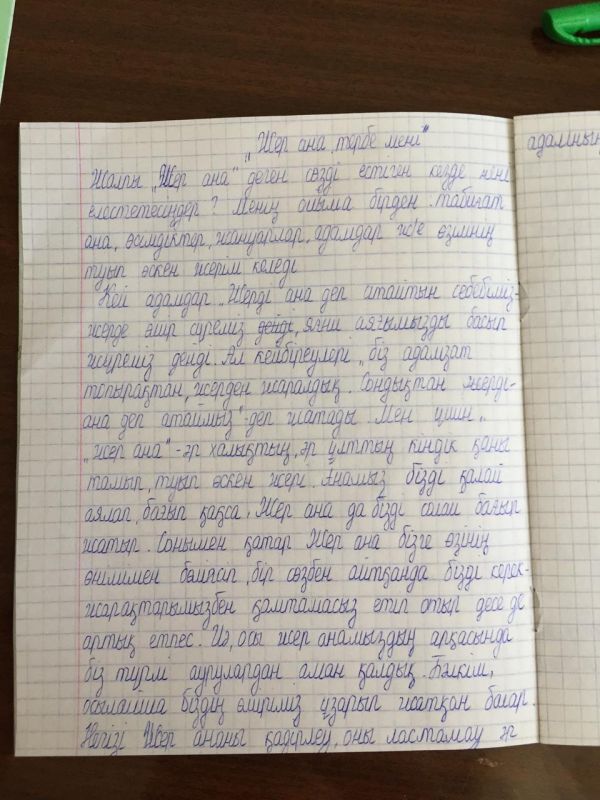 „Жер ана, тербе мені"
Жалпы „Жер ана" деген сөзді естіген кезде нені
елестетесіңдер? Менің ойыма бірден табиғат
ана, өсімдіктер, жануарлар, адамдар және өзімнің
туып өскен жерім келеді
Кей адамдар „Жерді ана деп атайтын себебіміз-
жерде өмір сүреміз дейді, яғни аяғымызды басып
жүреміз дейді. Ал кейбіреулері „біз адамзат
топырақтан, жерден жаралдық. Сондықтан жерді-
ана деп атаймыз"-деп жатады. Мен үшін „
„жер ана" - әр халықтың, әр ұлттың кіндік қаны
тамып, туып өскен жері. Анамыз бізді қалай
аялап, бағып қақса, Жер ана да бізді солай бағып
жатыр. Сонымен қатар Жер ана бізге өзінің
өнімімен бөлісіп, бір сөзбен айтқанда бізді керек-
жарақтарымызбен қамтамасыз етіп отыр десе де
артық етпес. Иә, осы жер анамыздың арқасында
біз түрлі аурулардан аман қалдық. Бәлкім,
осылайша біздің өміріміз ұзарып жатқан болар.
Негізі Жер ананы қадірлеу, оны ластамау әр
адамның